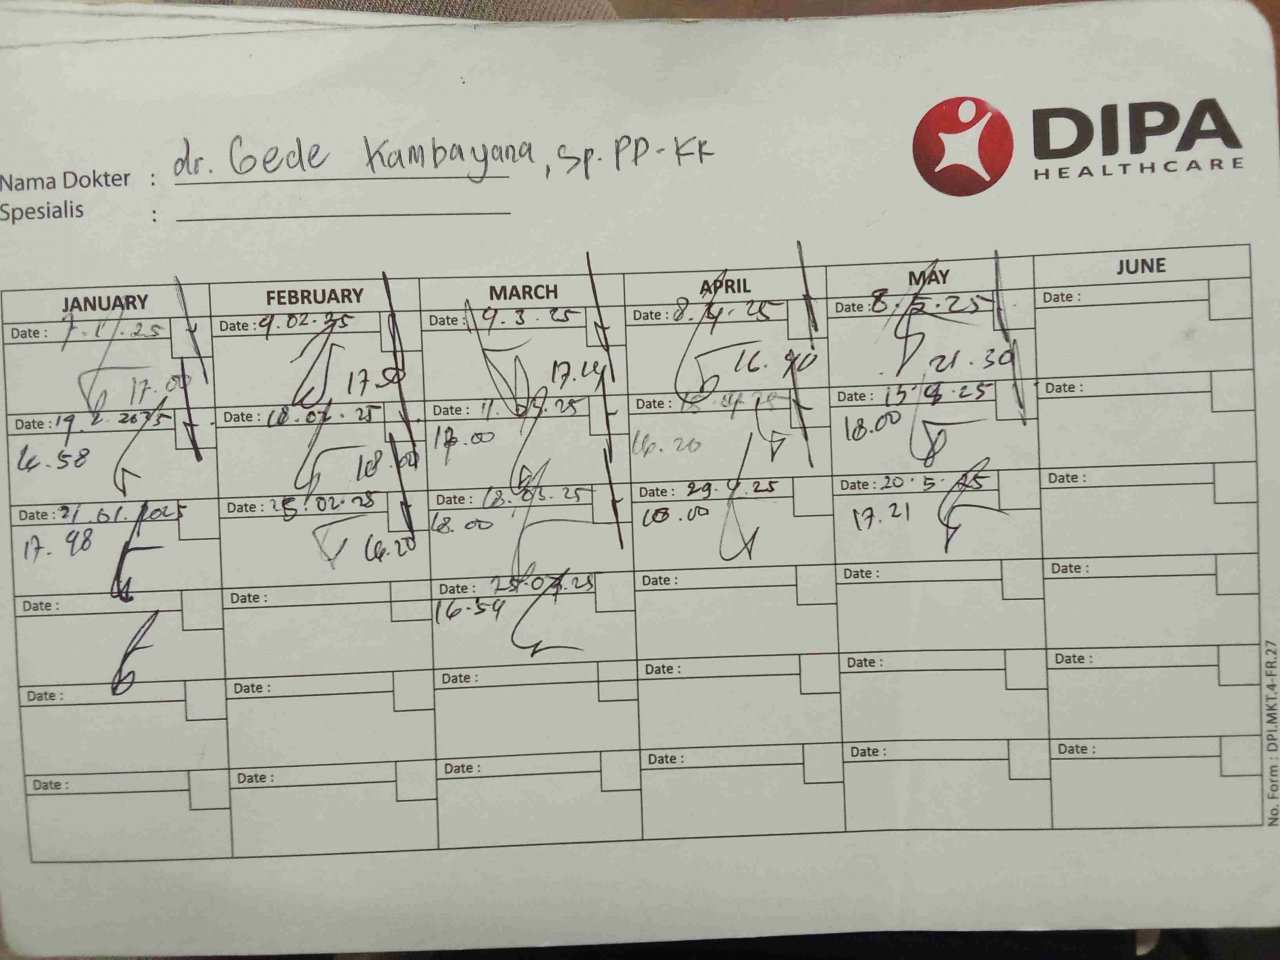 DIPA
HEALTHCARE
Nama Dokter : dr. Gede Kambayana, Sp. PD-KR
Spesialis :
JANUARY FEBRUARY MARCH APRIL MAY JUNE
Date : 7.1.25 Date : 9.02.25 Date : 9.3.25 Date : 8.4.25 Date : 8.5.25 Date :
17.00 17.50 17.14 16.40 21.30
Date : Date : 18.02.25 Date : 11.03.25 Date : Date : Date :
16.58 18.00 17.00 16.20 18.00
Date : 21.01.2025 Date : 25.02.25 Date : 18.03.25 Date : 29.4.25 Date : 20.5.25 Date :
17.48 16.20 18.00 18.00 17.21
Date : Date : Date : 25.03.25 Date : Date : Date :
16.54
Date : Date : Date : Date : Date : Date :
Date : Date : Date : Date : Date : Date :
No. Form : DPI.MKT.4-FR.27